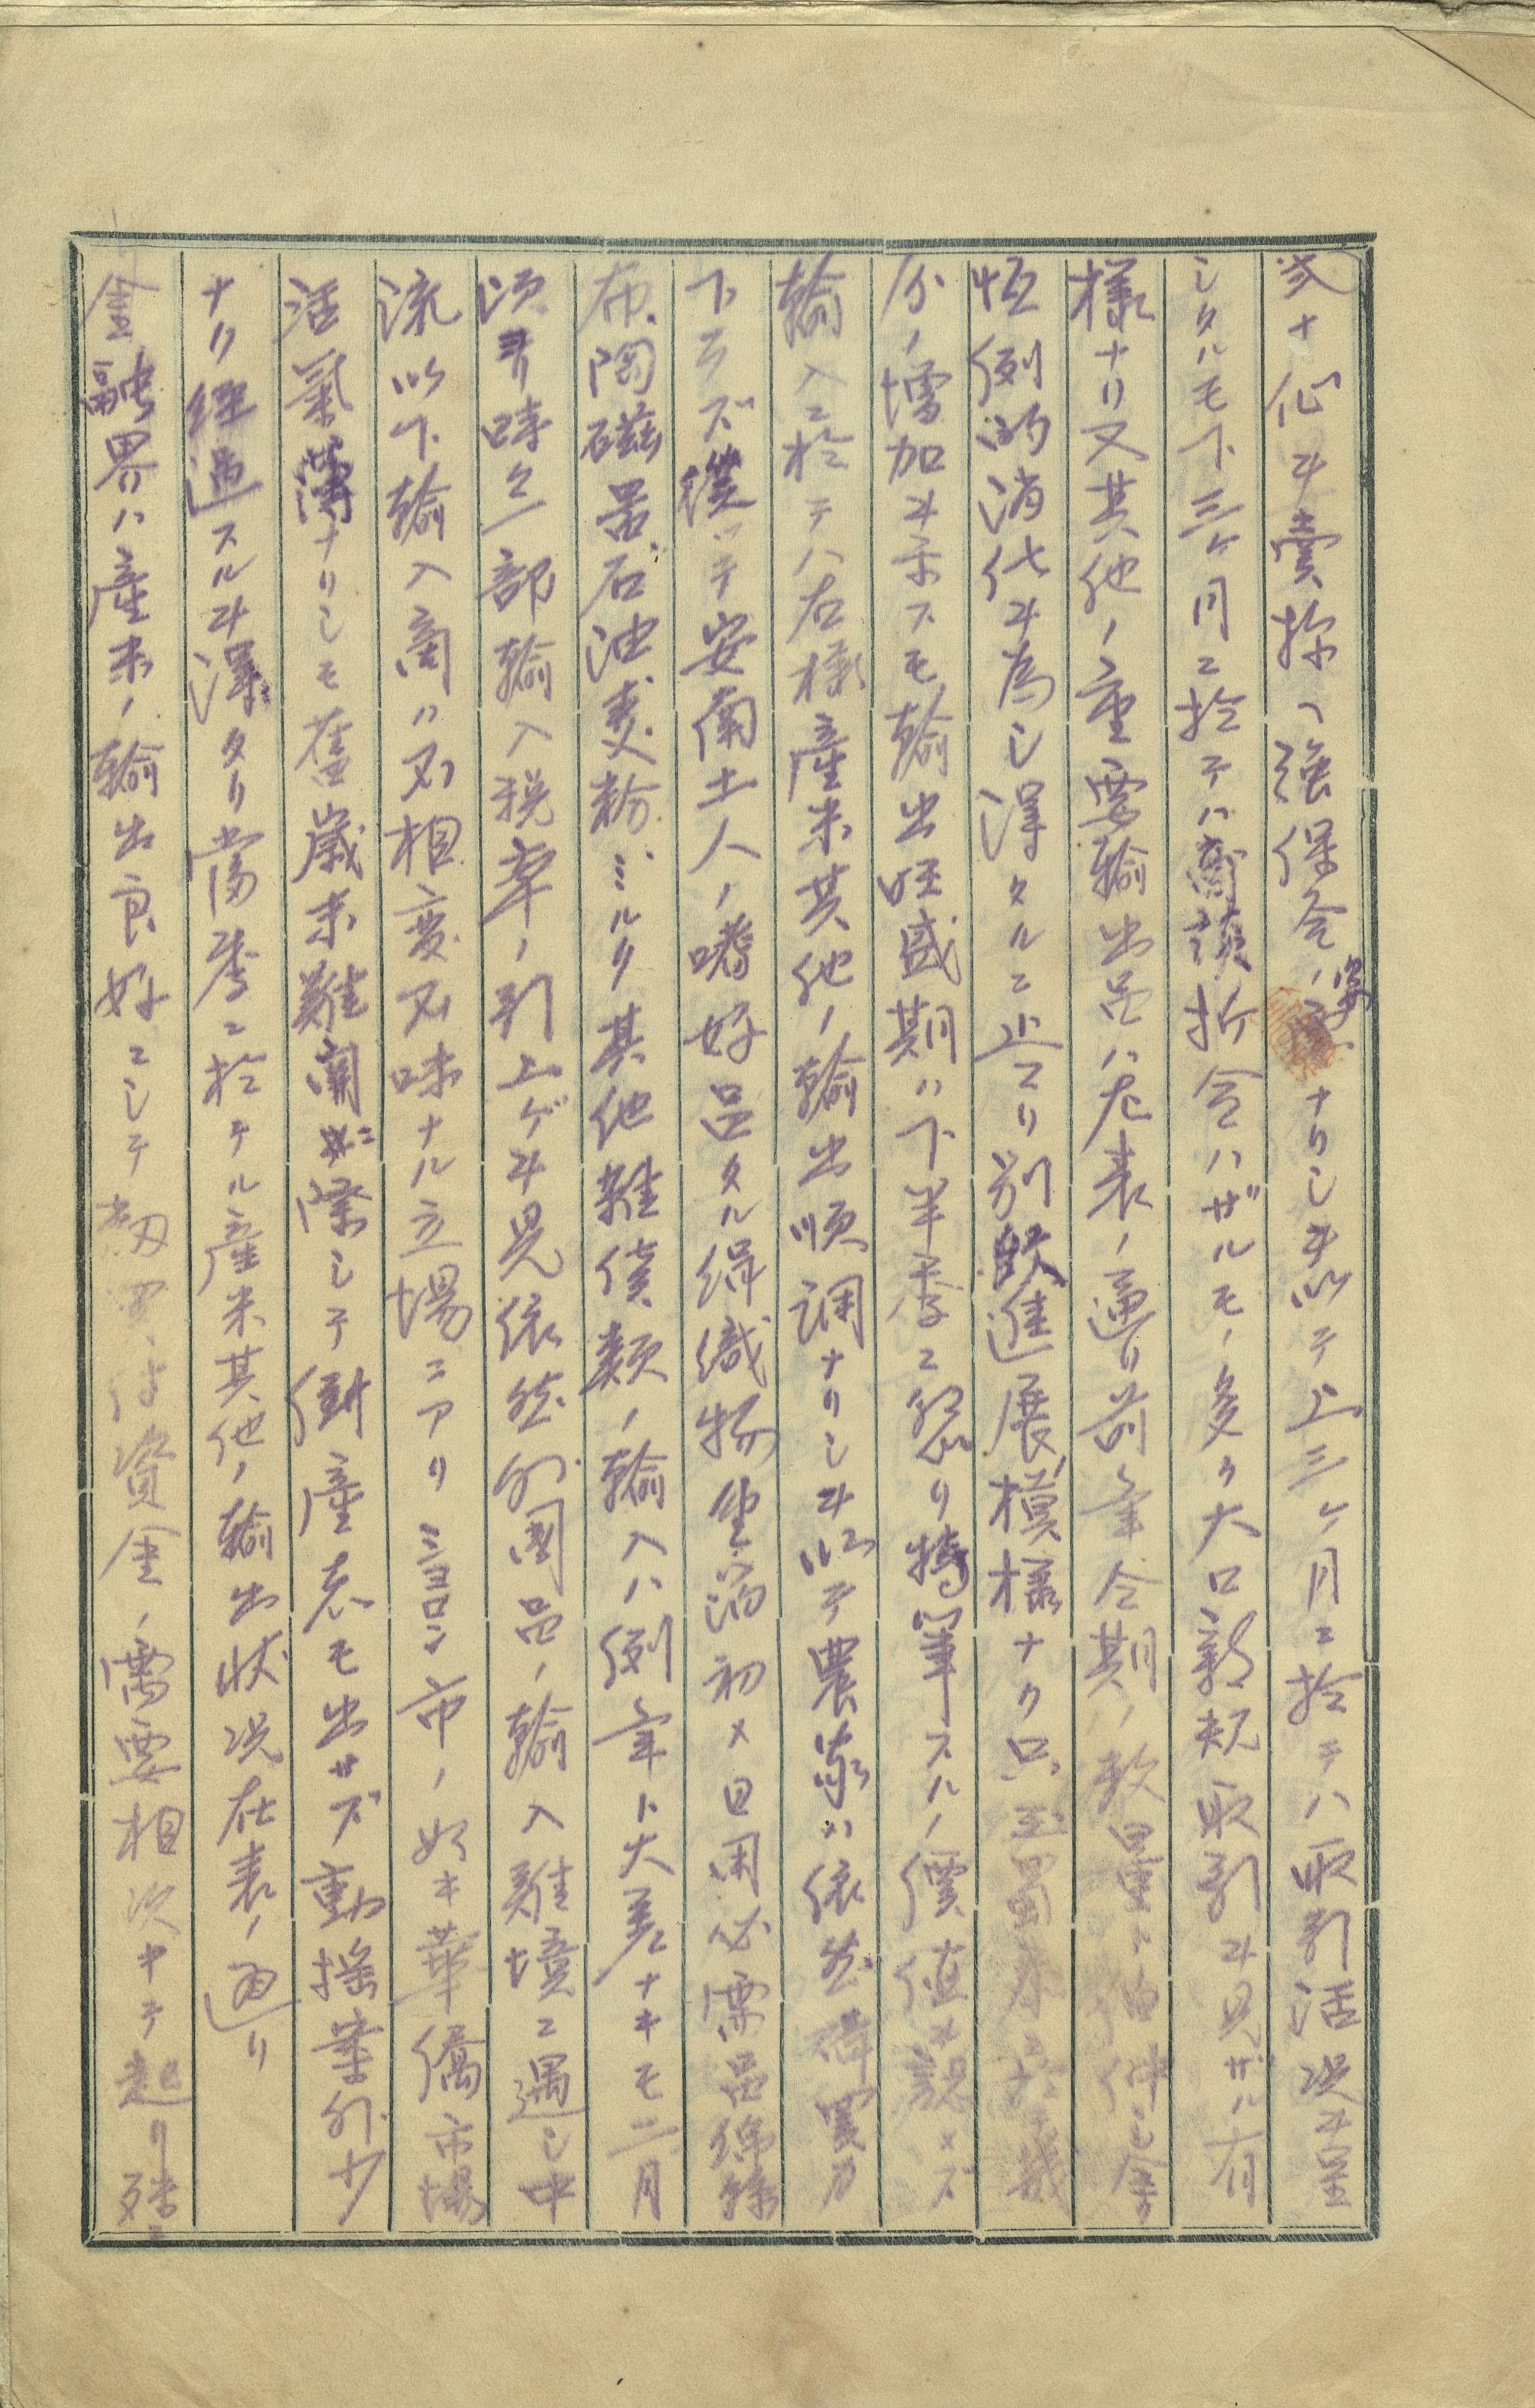 弐十仙ヲ賣捺ヘ強保合ノ姿ナリシヲ以テ上三ヶ月ニ於テハ取引活況ヲ呈
シタルモ下三ヶ月ニ於テハ商談折合ハザルモノ多ク大口新規取引ヲ見ザル有
様ナリ又其他ノ重要輸出品ハ左表ノ通リ前年仝期ノ数量ト伯仲シ全
恒例的消化ヲ為シ得タルニ止マリ別段進展模様ナク只玉蜀黍ニ於テ幾
分ノ増加ヲ示スモ輸出旺盛期ハ下半季ニ怒リ特筆スルノ價値ヲ認メズ
輸入ニ於テハ右様産米其他ノ輸出順調ナリシヲ以テ農家ハ依然購買力
下ラズ従ッテ安南土人ノ嗜好品タル絹織物 初メ日用必需品綿絲
布、陶磁器、石油、麦粉、ミルク其他雑貨類ノ輸入ハ例年ト大差ナキモ二月
頃ヨリ時々一部輸入税率ノ引上ゲヲ見依然外國品ノ輸入難境ニ遇シ中
流以下輸入商ハ不相変不味ナル立場ニアリショロン市ノ如キ華僑市場
活氣薄ナリシモ舊歳末難関ニ際シテ倒産者モ出サズ動揺案外少
ナク経過スルヲ得タリ當季ニ於テル産米其他ノ輸出状況左表ノ通リ
金融界ハ産米ノ輸出良好ニシテ 資金ノ需要相次キテ起リ殊ニ